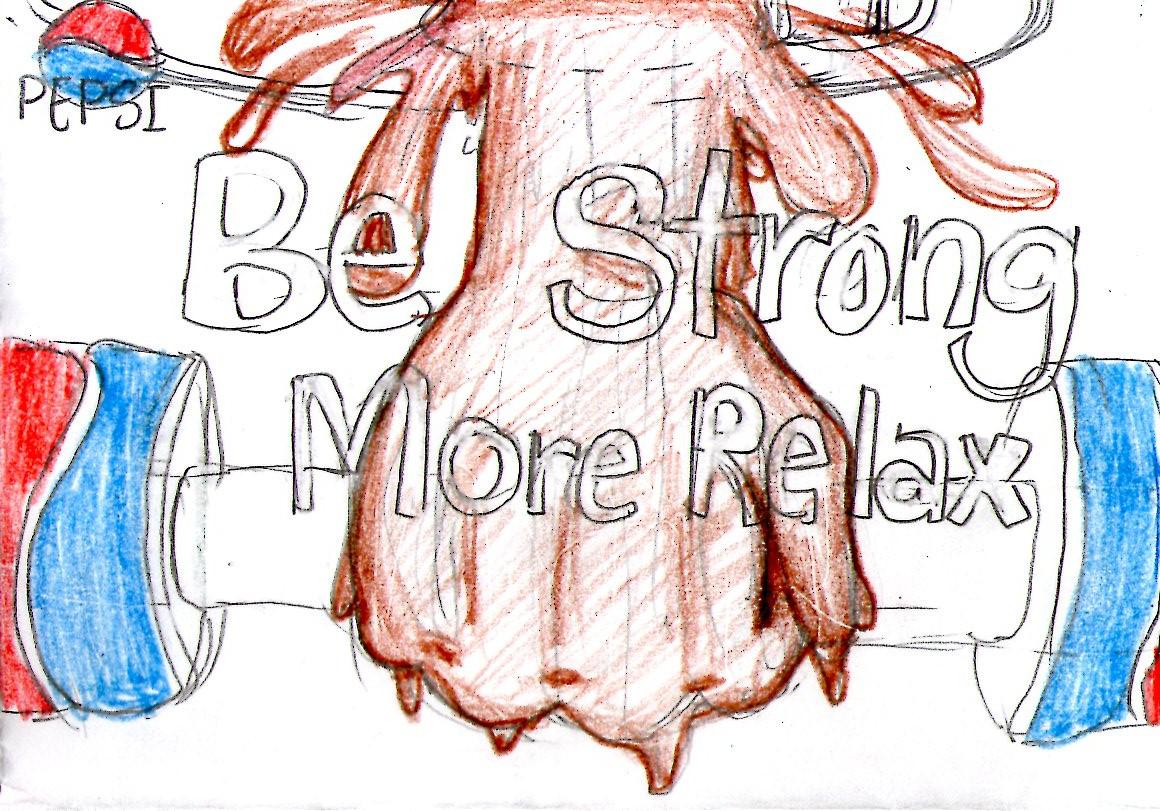 PEPSI
Be Strong
More Relax